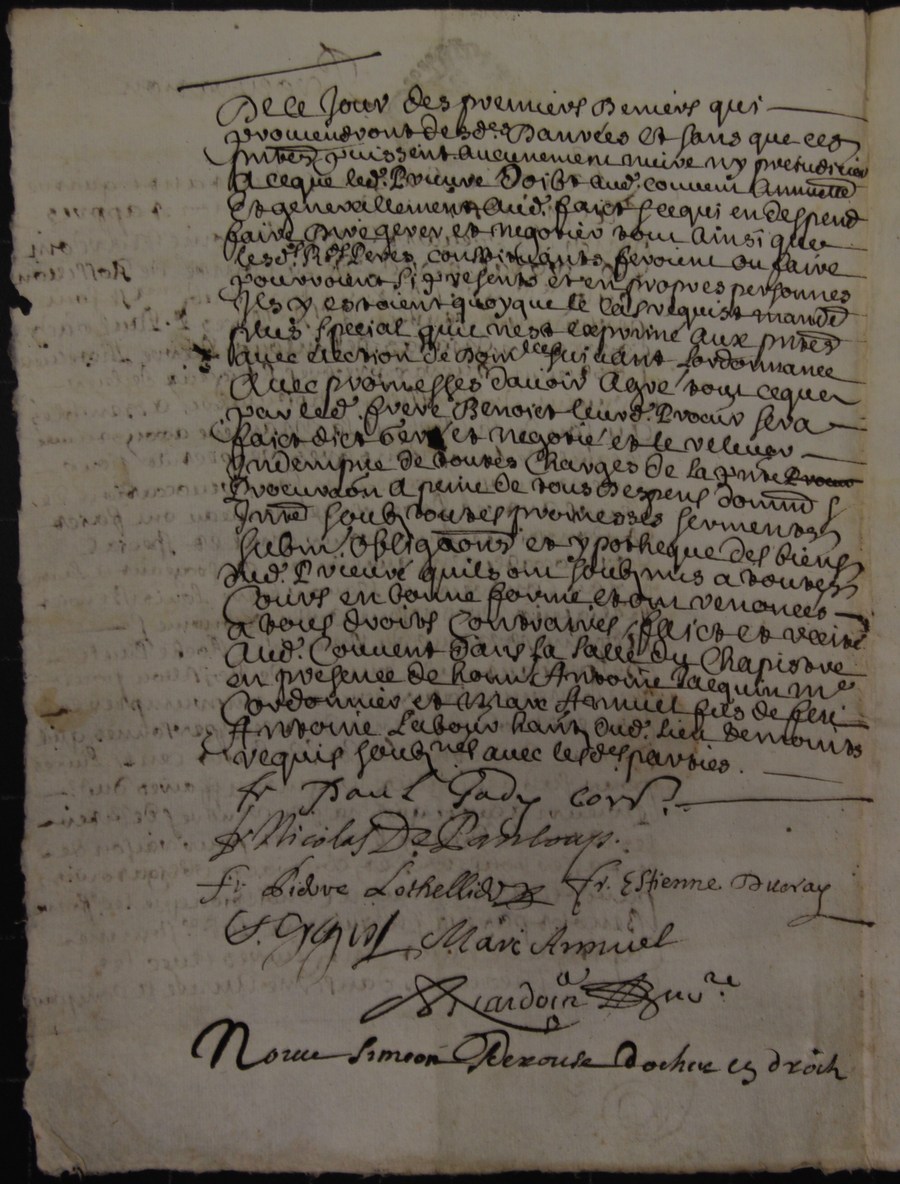 De ce jour des premiers deniers qui
proviendront desd. danrées et sans que ces
pntes puissent aucunement nuire ny prejudicier
a ce que led. Prieure doibt aud. couvent annuelle
Et generallement aud. faict et ce qui en despend
faire gerer et negotier tout ainsi que
lesd. Rds Peres constituants feroient ou faire
pourroient si presents et en propres personnes
Ils y estoient quoyque le cas requist mandt
plus special qui n'est exprimé aux pntes
avec election de domlces suivant l'ordonnance
Avec promesses d'avoir agré tout ce que
par led. frere Benoict leurd. Procur sera
faict dict geré et negotié et le relever
Indempne de toutes charges de la pnte
Procuraon a peine de tous despens domnd
Intrd soubz toutes promesses serments
submi. obligaons et ypotheque des biens
dud. Prieuré quils ont soubzmis a toutes
Cours en bonne forme et ont renoncés
a tous droits contraires, faict et recité
Aud. Couvent dans la salle du Chapistre
en presence de honn Antoine Jacquin me
Cordonnier et Marc Armuel fils de feu
Antoine Labour hantz dud. lieu tesmoints
requis soubznes avec lesd. parties.
fr Paul Gady
fr Nicolas De
fr. Pidore fr. Estienne Ducray
Marc Armuel
Nardoin
Simeon docteur es droictz